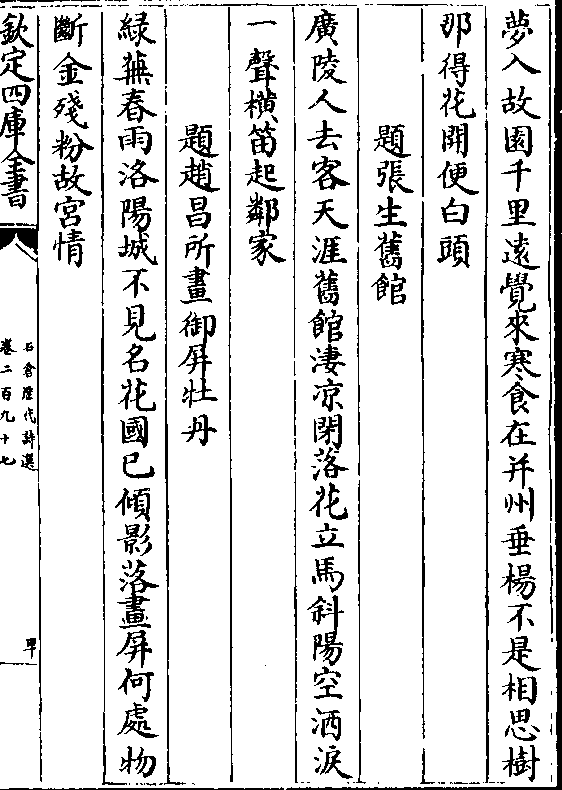 夢入故園千里遠覺來寒食在并州垂楊不是相思樹
那得花開便白頭
題張生舊館
廣陵人去客天涯舊館淒凉閉落花立馬斜陽空洒淚
一聲橫笛起鄰家
題趙昌所畫御屏牡丹
緑蕪春雨洛陽城不見名花國已傾影落畫屏何處物
斷金殘粉故宫情
欽定四庫全書
石倉歴代詩選
卷二百九十七